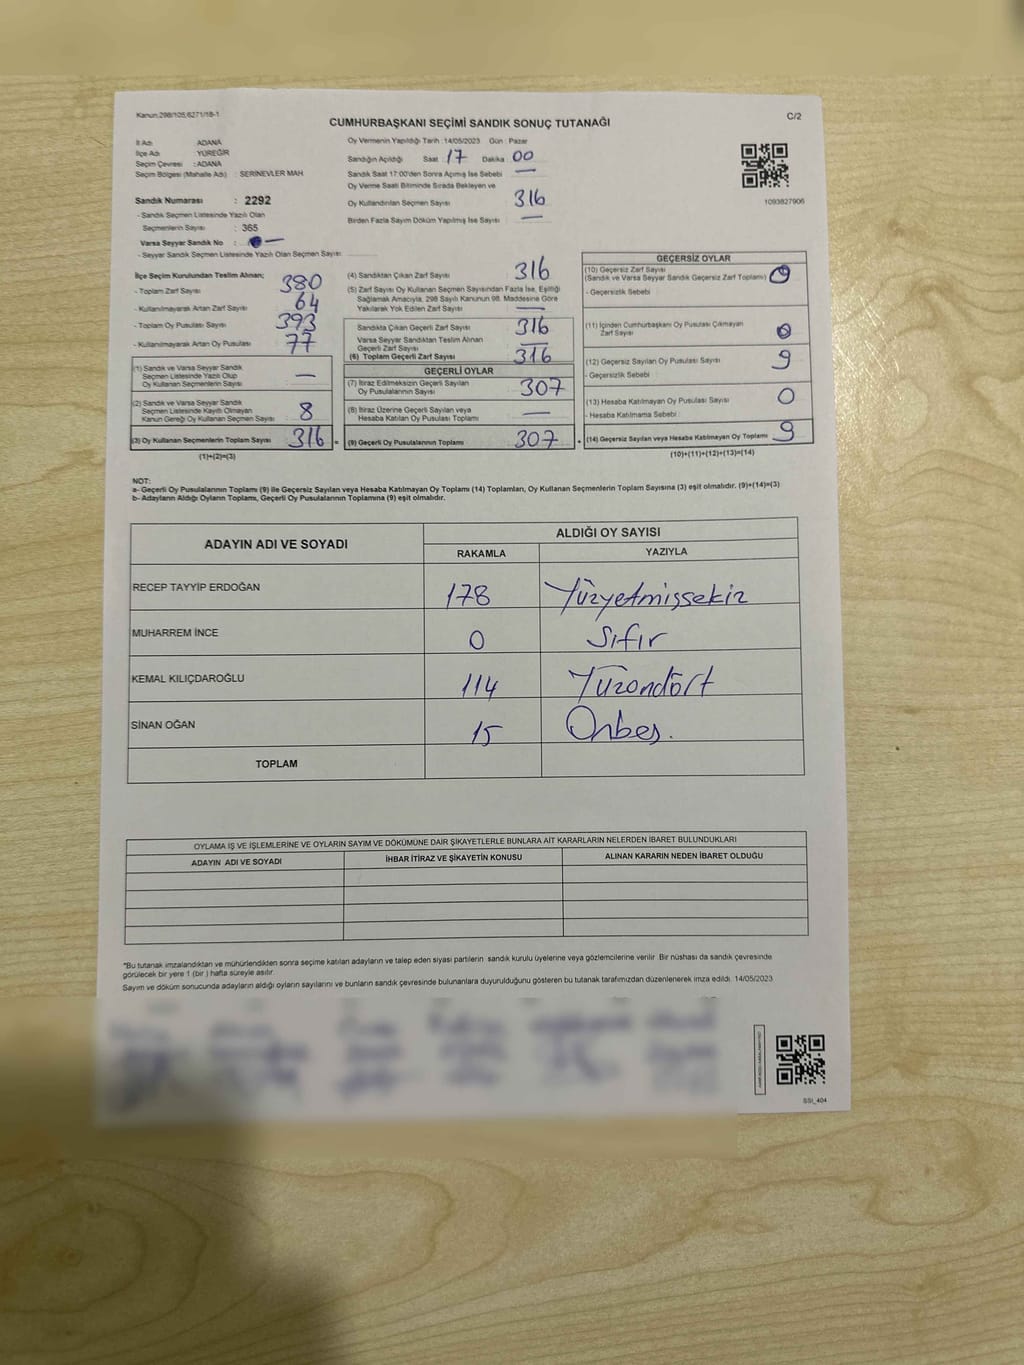 Kanun:298/105,6271/18-1
C/2
CUMHURBAŞKANI SEÇİMİ SANDIK SONUÇ TUTANAĞI
İl Adı : ADANA
İlçe Adı : YÜREĞİR
Seçim Çevresi : ADANA
Seçim Bölgesi (Mahalle Adı) : SERİNEVLER MAH
Sandık Numarası : 2292
- Sandık Seçmen Listesinde Yazılı Olan
Seçmenlerin Sayısı : 365
Varsa Seyyar Sandık No : —
- Seyyar Sandık Seçmen Listesinde Yazılı Olan Seçmen Sayısı :
Oy Vermenin Yapıldığı Tarih :14/05/2023 Gün : Pazar
Sandığın Açıldığı Saat : 17 Dakika : 00
Sandık Saat 17:00'den Sonra Açımış İse Sebebi —
Oy Verme Saati Bitiminde Sırada Bekleyen ve
Oy Kullandırılan Seçmen Sayısı 316
Birden Fazla Sayım Döküm Yapılmış İse Sayısı —
1093827906
İlçe Seçim Kurulundan Teslim Alınan;
- Toplam Zarf Sayısı : 380
- Kullanılmayarak Artan Zarf Sayısı : 64
- Toplam Oy Pusulası Sayısı : 393
- Kullanılmayarak Artan Oy Pusulası : 77
(1) Sandık ve Varsa Seyyar Sandık
Seçmen Listesinde Yazılı Olup
Oy Kullanan Seçmenlerin Sayısı —
(2) Sandık ve Varsa Seyyar Sandık
Seçmen Listesinde Kayıtlı Olmayan
Kanun Gereği Oy Kullanan Seçmen Sayısı 8
(3) Oy Kullanan Seçmenlerin Toplam Sayısı 316 =
(1)+(2)=(3)
(4) Sandıktan Çıkan Zarf Sayısı 316
(5) Zarf Sayısı Oy Kullanan Seçmen Sayısından Fazla İse, Eşitliği
Sağlamak Amacıyla, 298 Sayılı Kanunun 98. Maddesine Göre
Yakılarak Yok Edilen Zarf Sayısı —
Sandıkta Çıkan Geçerli Zarf Sayısı 316
Varsa Seyyar Sandıktan Teslim Alınan
Geçerli Zarf Sayısı —
(6) Toplam Geçerli Zarf Sayısı 316
GEÇERLİ OYLAR
(7) İtiraz Edilmeksizin Geçerli Sayılan
Oy Pusulalarının Sayısı 307
(8) İtiraz Üzerine Geçerli Sayılan veya
Hesaba Katılan Oy Pusulası Toplamı —
(9) Geçerli Oy Pusulalarının Toplamı 307 +
GEÇERSİZ OYLAR
(10) Geçersiz Zarf Sayısı
(Sandık ve Varsa Seyyar Sandık Geçersiz Zarf Toplamı)
- Geçersizlik Sebebi
(11) İçinden Cumhurbaşkanı Oy Pusulası Çıkmayan
Zarf Sayısı 0
(12) Geçersiz Sayılan Oy Pusulası Sayısı 9
- Geçersizlik Sebebi
(13) Hesaba Katılmayan Oy Pusulası Sayısı 0
- Hesaba Katılmama Sebebi
(14) Geçersiz Sayılan veya Hesaba Katılmayan Oy Toplamı 9
(10)+(11)+(12)+(13)=(14)
NOT:
a- Geçerli Oy Pusulalarının Toplamı (9) ile Geçersiz Sayılan veya Hesaba Katılmayan Oy Toplamı (14) Toplamları, Oy Kullanan Seçmenlerin Toplam Sayısına (3) eşit olmalıdır. (9)+(14)=(3)
b- Adayların Aldığı Oyların Toplamı, Geçerli Oy Pusulalarının Toplamına (9) eşit olmalıdır.
ADAYIN ADI VE SOYADI
ALDIĞI OY SAYISI
RAKAMLA YAZIYLA
RECEP TAYYİP ERDOĞAN 178 Yüzyetmişsekiz
MUHARREM İNCE 0 Sıfır
KEMAL KILIÇDAROĞLU 114 Yüzondört
SİNAN OĞAN 15 Onbeş.
TOPLAM
OYLAMA İŞ VE İŞLEMLERİNE VE OYLARIN SAYIM VE DÖKÜMÜNE DAİR ŞİKAYETLERLE BUNLARA AİT KARARLARIN NELERDEN İBARET BULUNDUKLARI
ADAYIN ADI VE SOYADI İHBAR İTİRAZ VE ŞİKAYETİN KONUSU ALINAN KARARIN NEDEN İBARET OLDUĞU
*Bu tutanak imzalandıktan ve mühürlendikten sonra seçime katılan adayların ve talep eden siyasi partilerin sandık kurulu üyelerine veya gözlemcilerine verilir. Bir nüshası da sandık çevresinde
görülecek bir yere 1 (bir ) hafta süreyle asılır.
Sayım ve döküm sonucunda adayların aldığı oyların sayılarını ve bunların sandık çevresinde bulunanlara duyurulduğunu gösteren bu tutanak tarafımızdan düzenlenerek imza edildi. 14/05/2023
SSI_404